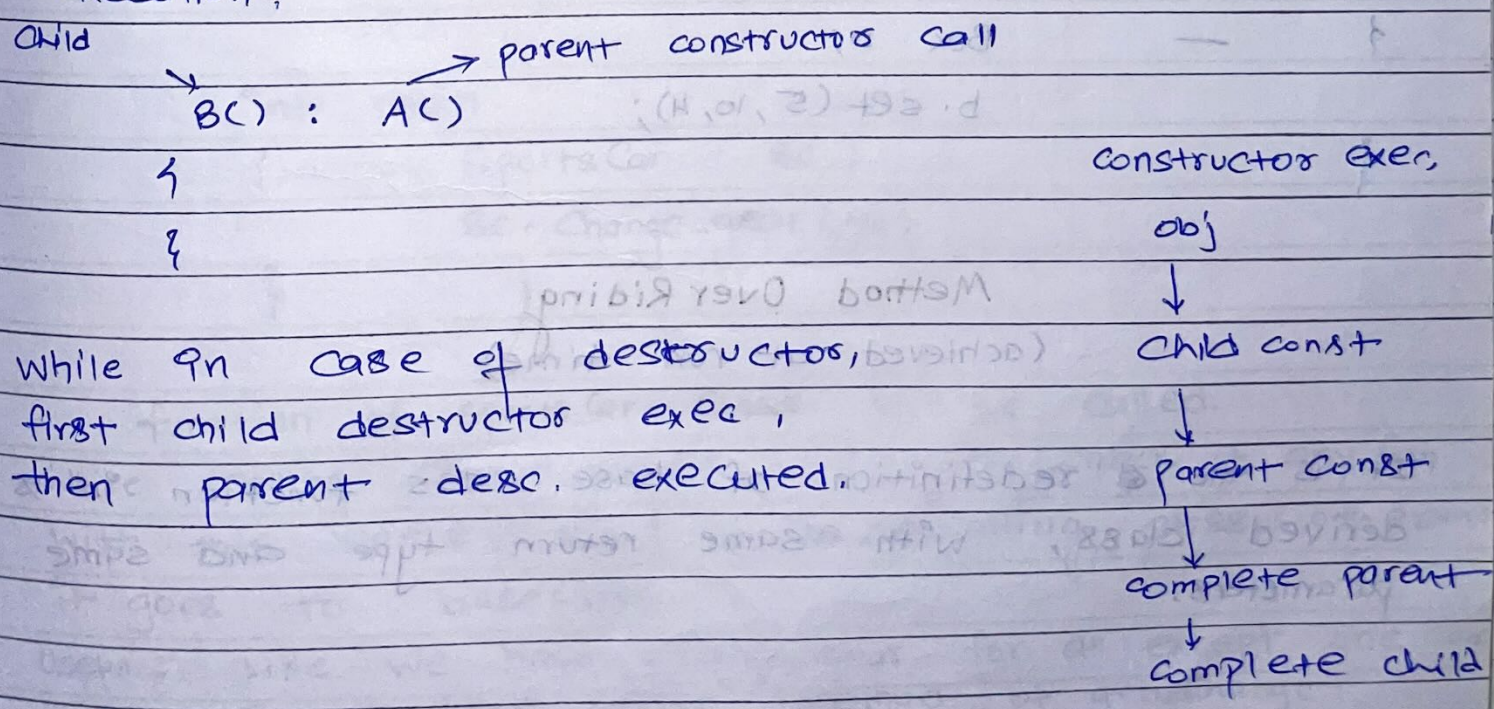 Child
parent constructor call
B() : A()
{
}
constructor exec,
obj
↓
Child const
↓
parent const
↓
complete parent
↓
complete child
While in case of destructor,
first child destructor exec,
then parent desc. executed.